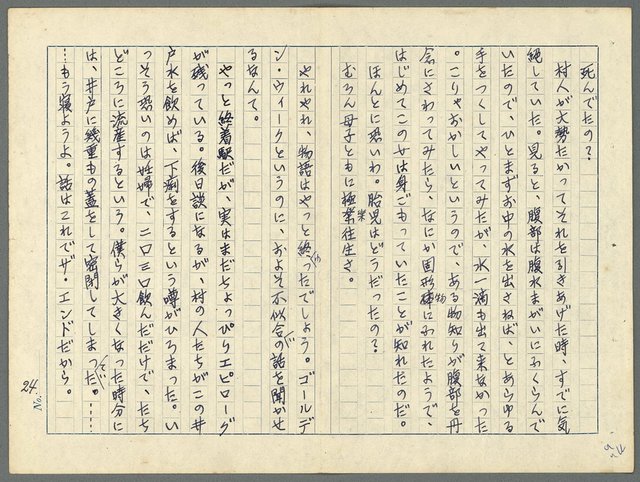 死んでたの？
村人が大勢たかってそれを引きあげた時、すでに気
絶していた。見ると、腹部は腹水まがいにふくらんで
いたので、ひとまずお中の水を出さねば、とあらゆる
手をつくしてやってみたが、水一滴も出て来なかった
。こりゃおかしいというので、ある物知りが腹部を丹
念にさわってみたら、なにか固形物にふれたようで、
はじめてこの女は身ごもっていたことが知れたのだ。
ほんとに恐いわ。胎児はどうだったの？
むろん母子ともに極楽往生さ。
やれやれ、物語はやっと終ったでしょう。ゴールデ
ン・ウィークというのに、およそ不似合の話を聞かせ
るなんて。
やっと終着駅だが、実はまだちょっぴりエピローグ
が残っている。後日談になるが、村の人たちがこの井
戸水を飲めば、下痢をするという噂がひろまった。い
っそう恐いのは妊婦で、二口三口飲んだだけで、たち
どころに流産するという。僕らが大きくなった時分に
は、井戸に幾重もの蓋をして密閉してしまった。……
……もう寝ようよ。話はこれでザ・エンドだから。
24.
No.